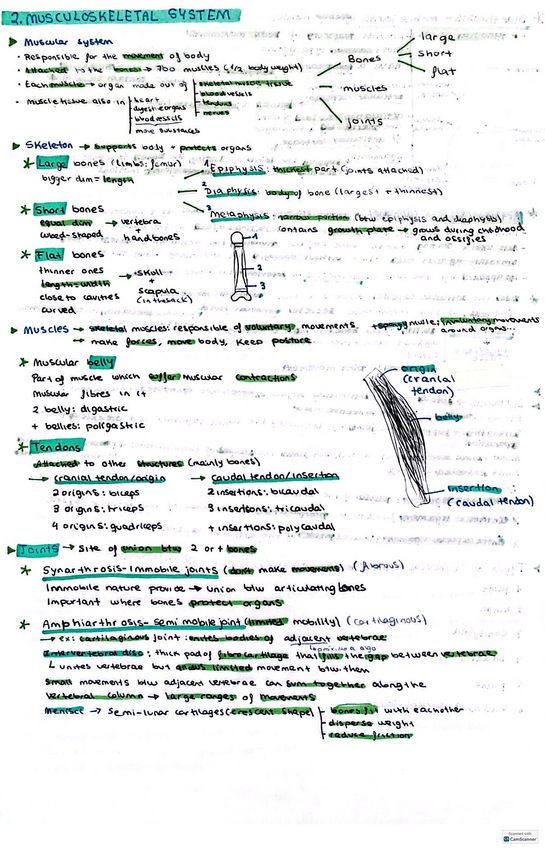 2. MUSCULOSKELETAL SYSTEM
Muscular system
• Responsible for the movement of body
• Attached to the bones → 700 muscles (1/2 body weight)
• Each muscle → organ made out of
skeletal muscle tissue
blood vessels
tendons
nerves
• Muscle tissue also in
heart
digestive organs
blood vessels
move substances
Bones
large
short
flat
muscles
joints
Skeleton → supports body + protects organs
* Large bones (limbs: femur)
bigger dim = length
1 Epiphysis: thickest part (joints attached)
2 Diaphysis: body of bone (largest + thinnest)
3 Metaphysis: narrow portion (btw epiphysis and diaphysis)
contains growth plate → grows during childhood and ossifies
* Short bones
equal dim
cubed-shaped
→ vertebra
+
hand bones
1
2
3
* Flat bones
thinner ones
length = width
close to cavities
curved
→ skull
+
scapula
Muscles → skeletal muscles: responsible of voluntary movements
involuntary movements
around organs...
→ make forces, move body, keep posture
* Muscular belly
Part of muscle which suffer muscular contractions
Muscular fibres in it
2 belly: digastric
+ bellies: poligastric
origin
(cranial
tendon)
belly
insertion
(caudal tendon)
* Tendons
Attached to other structures (mainly bones)
→ cranial tendon/origin
2 origins: biceps
3 origins: triceps
4 origins: quadriceps
→ caudal tendon/insertion
2 insertions: bicaudal
3 insertions: tricaudal
+ insertions: polycaudal
Joints → Site of union btw 2 or + bones
* Synarthrosis - Immobile joints (don't make movements) (fibrous)
Immobile nature provide → union btw articulating bones
Important where bones protect organs
* Amphiarthrosis - semi mobile joint (limited mobility) (cartilaginous)
→ ex: cartilaginous joint: unites bodies of adjacent vertebrae
Intervertebral disc: thick pad of fibrocartilage that fills the gap between vertebrae
↳ unites vertebrae but allows limited movement btw them
Small movements btw adjacent vertebrae can sum together along the
vertebral column → large ranges of movements
Menisci → semi-lunar cartilages (crescent shape)
bones fit with eachother
disperse weight
reduce friction
Scanned with
CamScanner